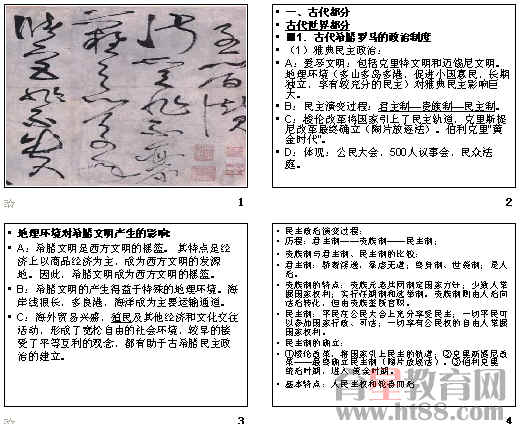 1
一、古代部分
古代世界部分
1．古代希腊罗马的政治制度
（1）雅典民主政治：
A：爱琴文明：包括克里特文明和迈锡尼文明。
地理环境（多山多岛多港，促进小国寡民，长期
独立，享有较充分的民主）对雅典民主影响巨
大。
B：民主演变过程：君主制—贵族制—民主制。
C：梭伦改革将国家引上了民主轨道，克里斯提
尼改革最终确立（陶片放逐法）。伯利克里"黄
金时代"。
D：体现：公民大会，500人议事会，民众法
庭。
2
地理环境对希腊文明产生的影响:
A：希腊文明是西方文明的摇篮。其特点是经
济上以商品经济为主，成为西方文明的发源
地。因此，希腊文明成为西方文明的摇篮。
B：希腊文明的产生得益于特殊的地理环境。海
岸线很长，多良港，海洋成为主要运输通道。
C：海外贸易兴盛，殖民及其他经济和文化交往
活动，形成了宽松自由的社会环境，较早的接
受了平等互利的观念，都有助于古希腊民主政
治的建立。
3
民主政治演变过程：
历程：君主制——贵族制——民主制；
贵族制与君主制、民主制的比较：
君主制：骄奢淫逸，暴虐无道；终身制，世袭制；是人
治。
贵族制的特点：贵族元老共同制定国家方针；少数人掌
握国家权利；实行任期制和选举制。贵族制则由人治向
法治转化，但由贵族垄断官职。
民主制：平民在公民大会上充分享受民主；一切平民可
以参加国家行政、司法；一切享有公民权的自由人掌握
国家权利。
民主制的确立：
①梭伦改革，将国家引上民主的轨道；②克里斯提尼改
革——最终确立民主制（陶片放逐法）。③伯利克里
统治时期，进入"黄金时期。
基本特点：人民主权和轮番而治
4
育星教育网
www.ht88.com